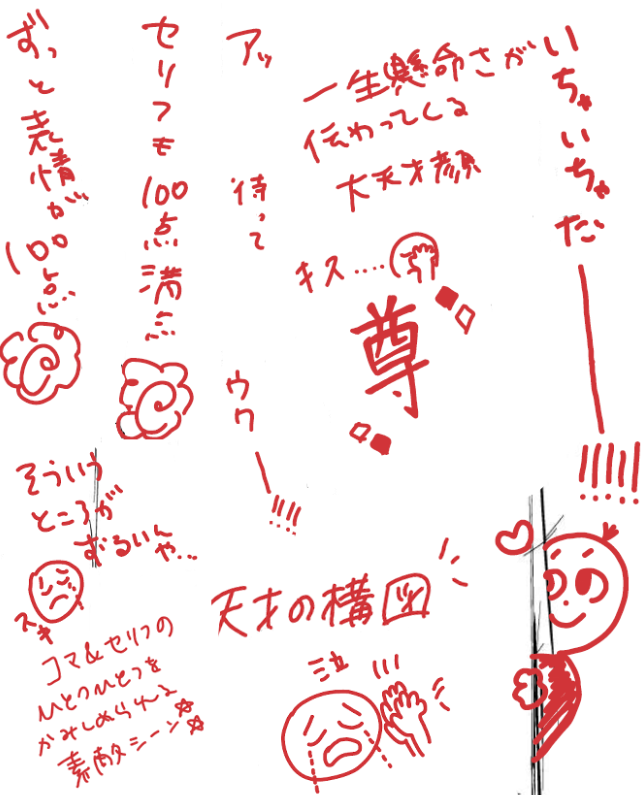 いちゃいちゃだ——!!!!!
一生懸命さが
伝わってくる
大天才顔
キス....
尊
アッ
待って
ウワ—!!!!
セリフも100点満点
ずっと表情が100点...
そういう
ところが
ずるいんや...
スキ
コマ&セリフの
ひとつひとつを
かみしめられる
素敵シーン☆☆
天才の構図
泣